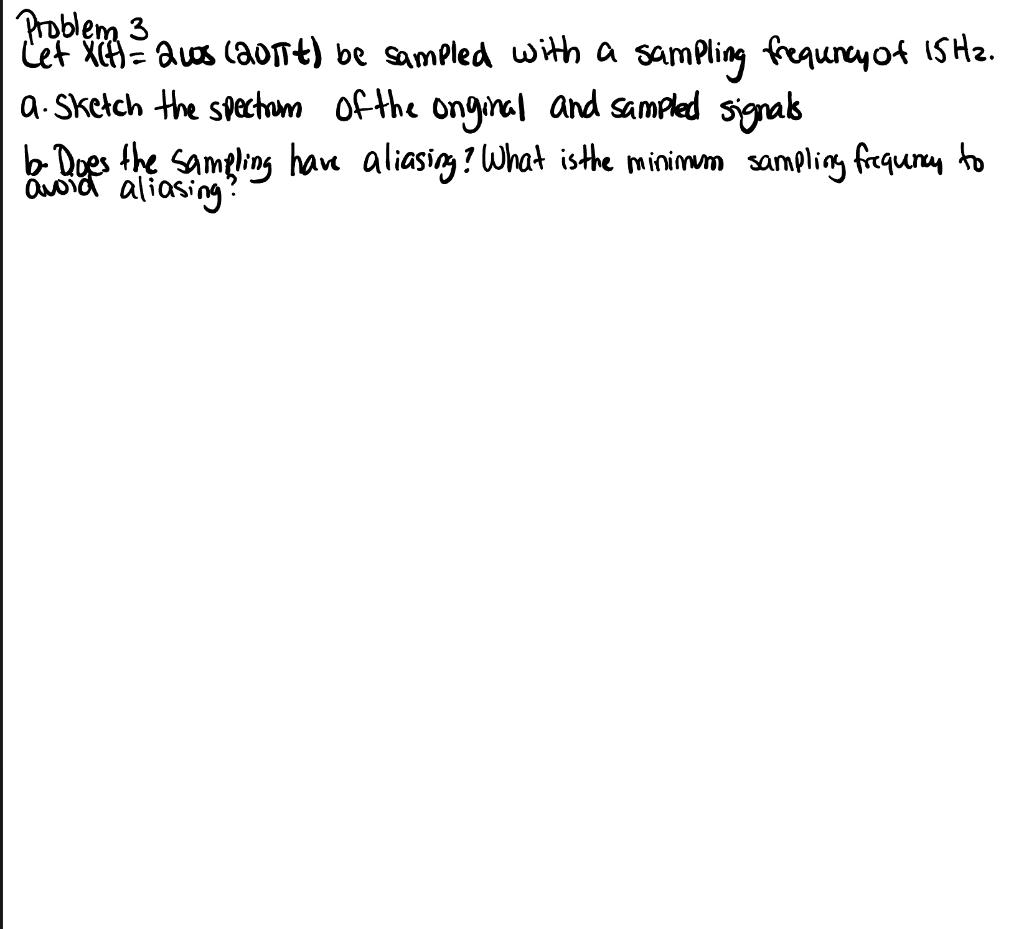 Problem 3
Let X(t) = 2cos (20πt) be sampled with a sampling frequency of 15Hz.
a. Sketch the spectrum of the original and sampled signals
b. Does the sampling have aliasing? What is the minimum sampling frequency to
avoid aliasing?